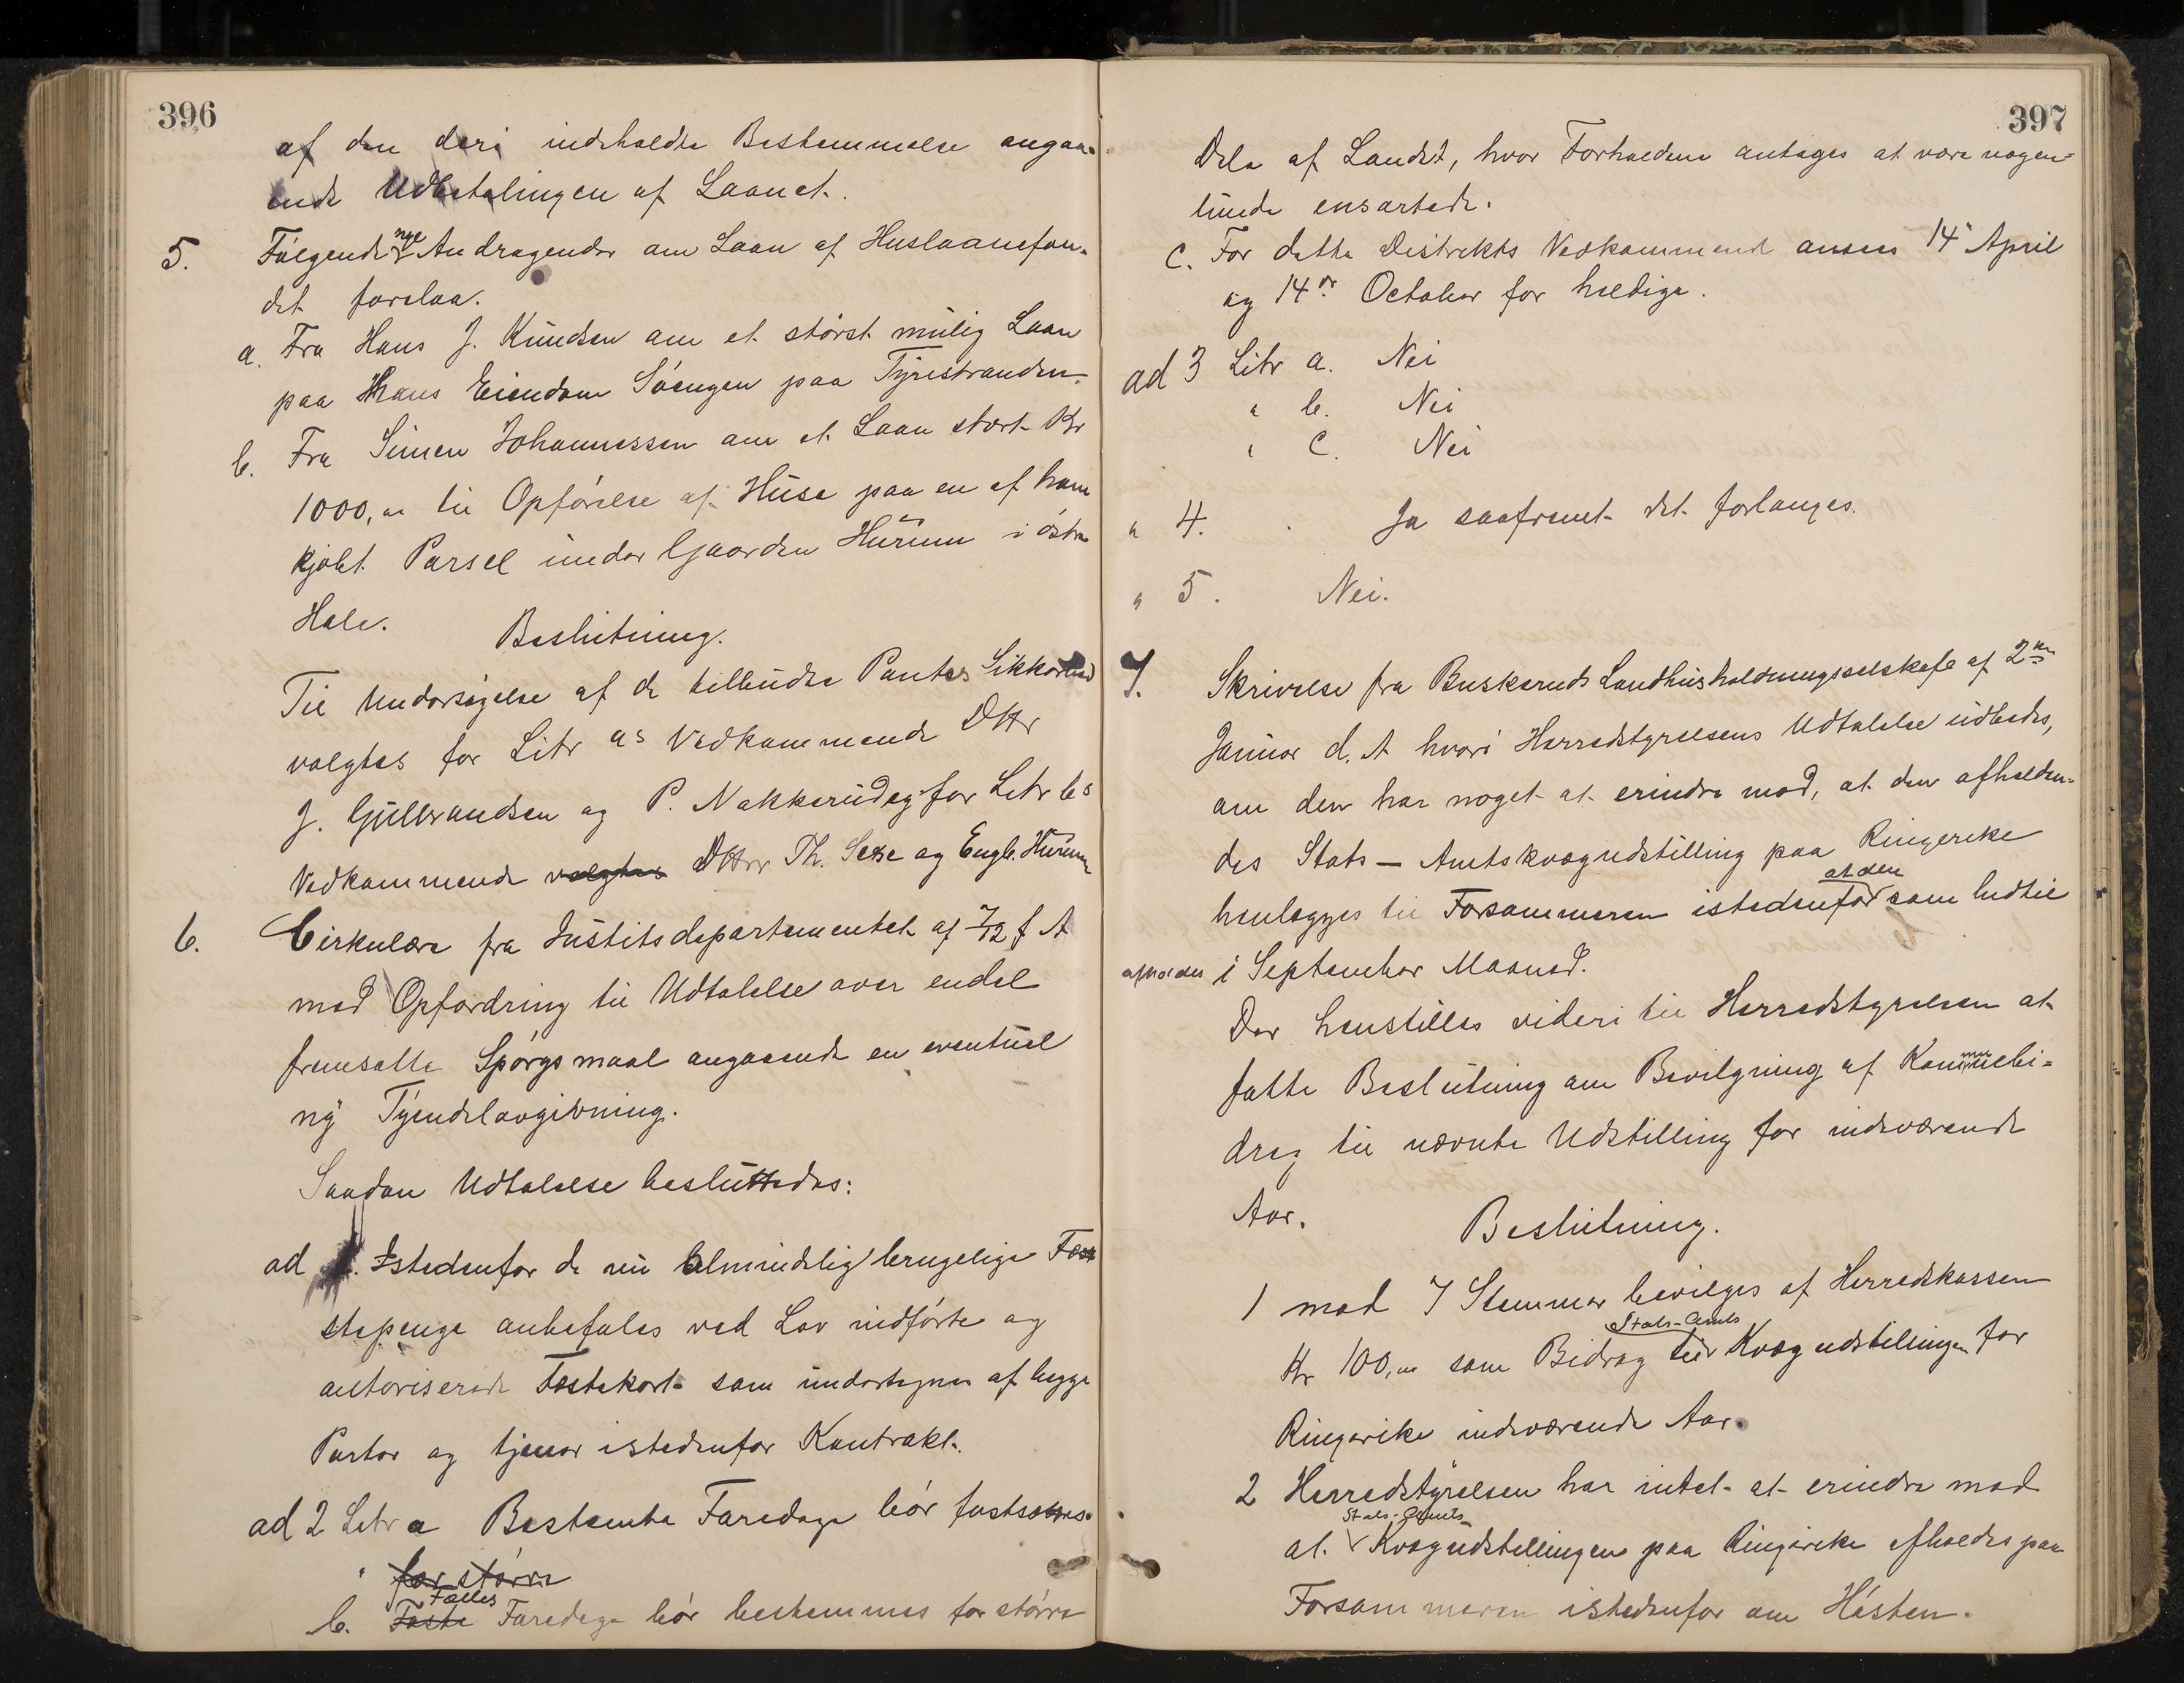 396
af den deri indeholdte Bestemmelse angaa-
ende Udbetalingen af Laanet.
5. Følgende nye Andragender om Laan af Huslaanefon-
det forelaa.
a. Fra Hans J. Knudsen om et størst mulig Laan
paa Hans Eiendom Søengen paa Tyristranden.
b. Fra Simen Johannessen om et Laan stort Kr
1000,00 til Opførelse af Huse paa en af ham
kjøbt Parsel under Gaarden Hurum i østre
Hole.
Beslutning.
Til Undersøgelse af de tilbudte Panters Sikkerhed
valgtes for Litr as Vedkommende DHrr
J. Gulbrandsen og P. Nakkerud og for Litr bs
Vedkommende valgtes DHrr Th. Sexe og Engb. Hurum
6. Cirkulære fra Justitsdepartementet af 7/12 f A
med Opfordring til Udtalelse over endel
fremsatte Spørgsmaal angaaende en eventuel
ny Tyendelovgivning.
Saadan Udtalelse besluttedes:
ad 1. Istedenfor de nu almindelig brugelige Fæste-
stepenge anbefales ved Lov indførte og
autoriserede Fæstekort som undertegnes af begge
Parter og tjener istedenfor Kontrakt.
ad 2 Litr a Bestemte Faredage bør fastsættes.
" for større
b. Faste Fælles Faredage bør bestemmes for større
397
Dele af Landet, hvor Forholdene antages at være nogen-
lunde ensartede.
c. For dette Distrikts Vedkommende ansees 14de April
og 14de October for heldige.
ad 3 Litr a. Nei
" b. Nei
" c. Nei
" 4. Ja saafremt det forlanges.
" 5. Nei.
7. Skrivelse fra Buskeruds Landhusholdningsselskab af 2den
Januar d. A hvori Herredstyrelsens Udtalelse udbedes,
om den har noget at erindre mod, at den afholden-
des Stats-Amtskvægudstilling paa Ringerike
henlægges til Forsommeren istedenfor at den som hidtil
afholdes i September Maaned.
Der henstilles videre til Herredstyrelsen at
fatte Beslutning om Bevilgning af Kommunebi-
drag til nævnte Udstilling for indeværende
Aar.
Beslutning.
1 mod 7 Stemmer bevilges af Herredskassen
Kr 100,00 som Bidrag til Stats-Amts Kvægudstillingen for
Ringerike indeværende Aar.
2 Herredstyrelsen har intet at erindre mod
at Stats-Amts- Kvægudstillingen paa Ringerike afholdes paa
Forsommeren istedenfor om Høsten.